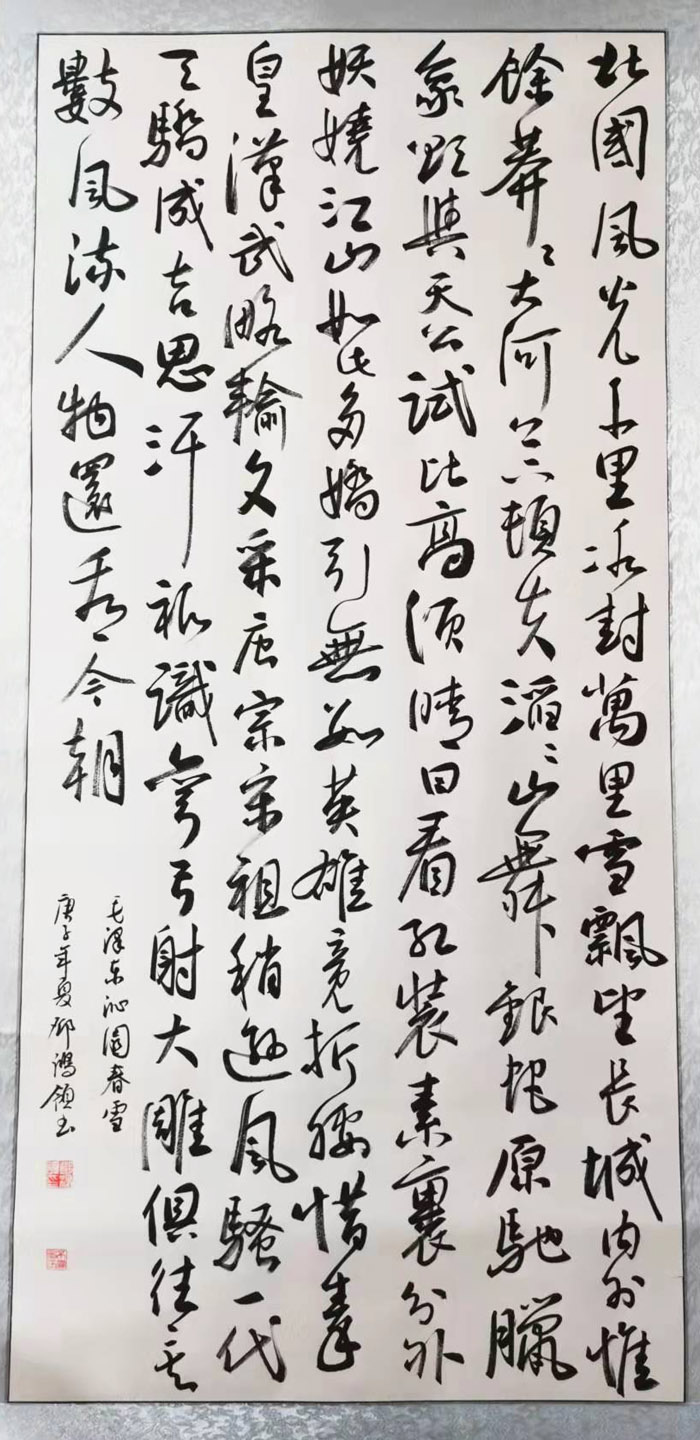 北國風光千里冰封萬里雪飄望長城内外惟
餘莽〻大河上下頓失滔〻山舞銀蛇原馳臘
象欲與天公試比高須晴日看紅裝素裹分外
妖嬈江山如此多嬌引無數英雄竞折腰惜秦
皇漢武略輸文采唐宗宋祖稍遜風騷一代
天驕成吉思汗祗識彎弓射大雕俱往矣
數風流人物還看今朝
毛澤东沁園春雪
庚子年夏鴻領书